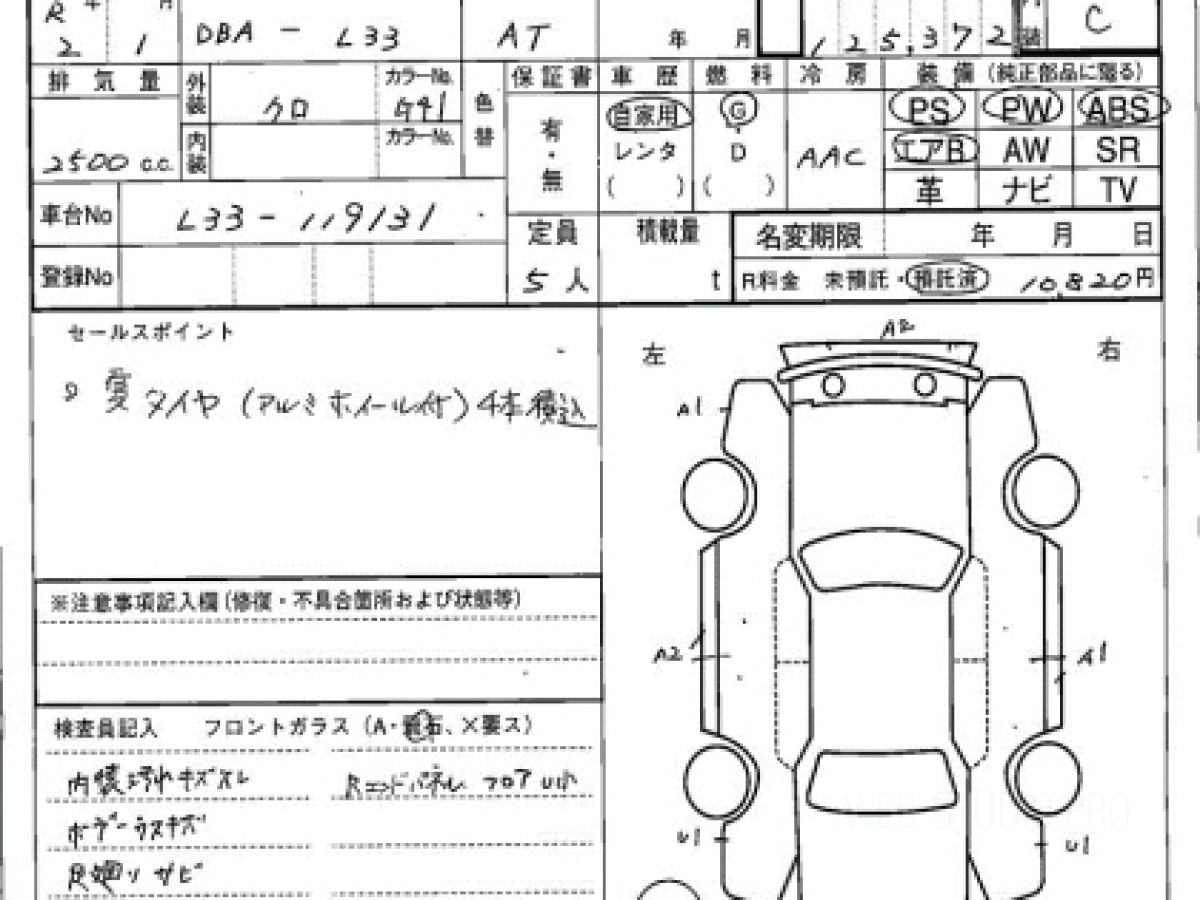 R 4 月
2 1 DBA - L33 AT 年 月 125,372 内装 C
排気量 外装 クロ カラーNo. G41 色替 保証書 車歴 燃料 冷房 装備 (純正部品に限る)
2500 c.c. 内装 カラーNo. 有・無 自家用 G AAC PS PW ABS
レンタ D エアB AW SR
( ) ( ) 革 ナビ TV
車台No L33-119131 定員 積載量 名変期限 年 月 日
登録No 5人 t R料金 未預託・預託済 10,820円
セールスポイント
夏タイヤ (アルミホイール付) 4本積込
※注意事項記入欄(修復・不具合箇所および状態等)
検査員記入 フロントガラス (A・飛石、×要ス)
内装汚れキズスレ Rエンドパネル フロアU小
ボデーウスキズ
足廻りサビ
左 A2 右
A1
A2 A1
U1 U1